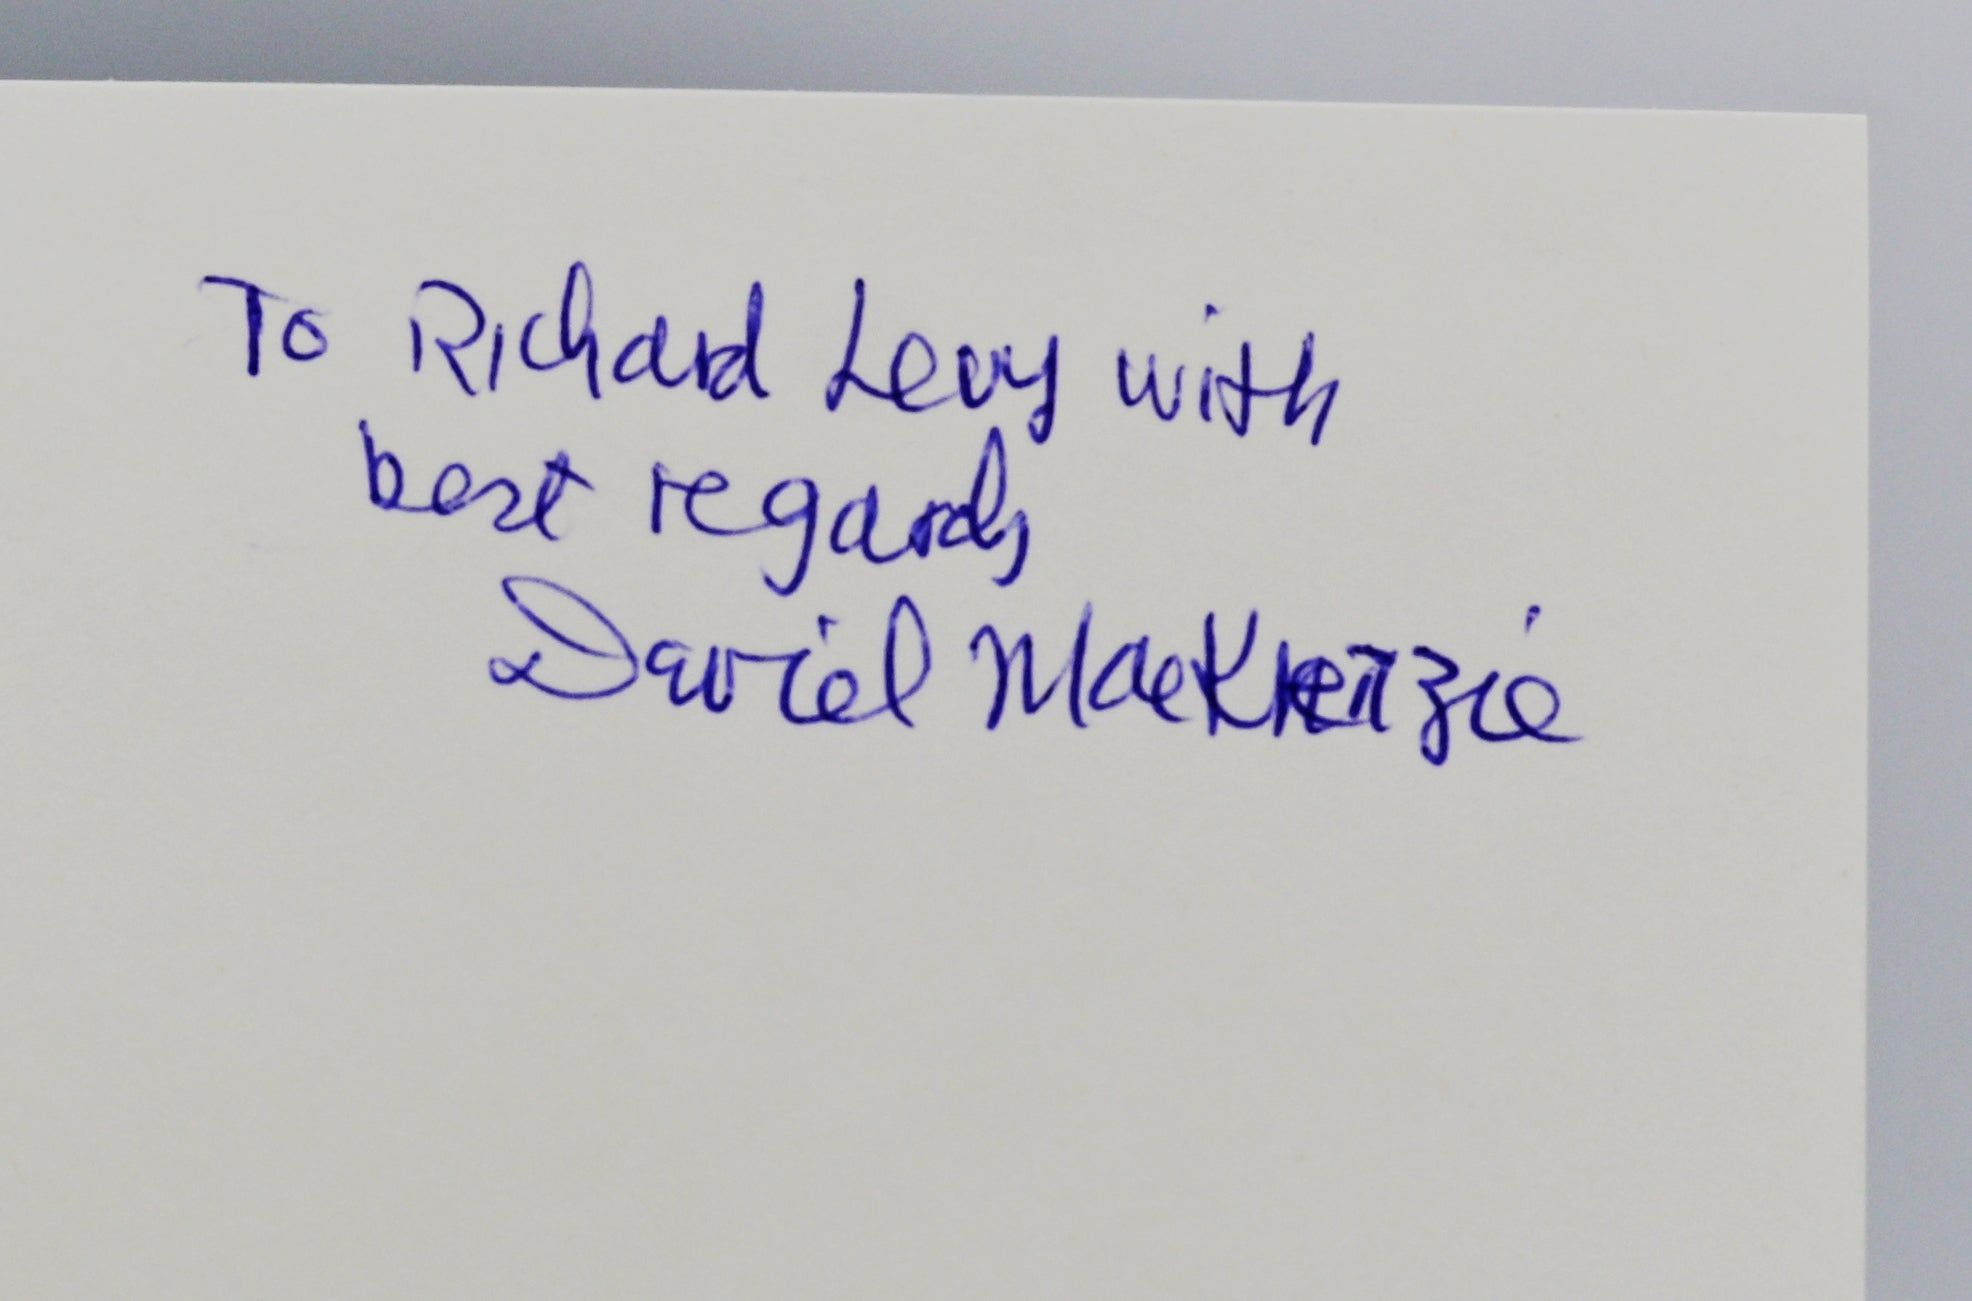 To Richard Levy with
best regards
David MacKenzie